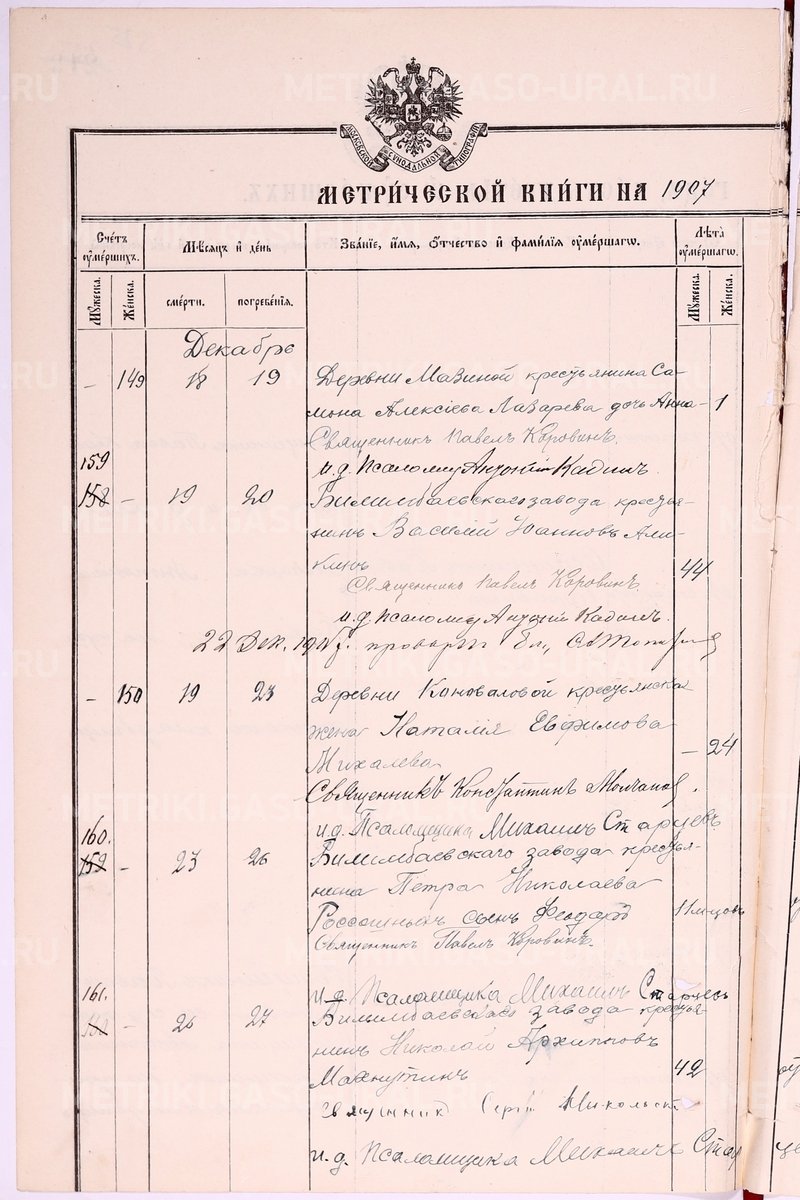 МОСКОВСКОЙ СѴНОДАЛЬНОЙ ТИПОГРАФІИ
МЕТРИ́ЧЕСКОЙ КНИ́ГИ НА 1907
Сче́тъ оу҆ме́ршихъ.
Мѣ́сяцъ и҆ де́нь
Зва́нїе, и҆́мя, ѻ҆́тчество и҆ фами́лїя оу҆ме́ршагѡ.
Лѣ́та оу҆ме́ршагѡ.
Му́жеска.
Же́нска.
сме́рти.
погребе́нїя.
Му́жеска.
Же́нска.
Декабрь
– 149 18 19 Деревни Мазиной крестьянина Са-
мона Алексіева Лазарева дочь Анна – 1
Священникъ Павелъ Коровинъ.
159
и.д. Псаломщ Антоній Кадинъ.
158 – 19 20 Билимбаевскаго завода кресть-
янинъ Василій Іоанновъ Али-
кинъ 44
Священникъ Павелъ Коровинъ
и.д. псаломщ Антоній Кадинъ.
22 Дек. 1907 г.
– 150 19 23 Деревни Коноваловой крестьянска
жена Наталія Евфимова
Михалева – 24
Священникъ Константинъ Молчанов.
160.
и.д. Псаломщика Михаилъ Старцевъ
159 – 23 26 Билимбаевскаго завода кресть-
янина Петра Николаева
Россошныхъ сынъ Феодоръ 11 мцовъ
Священникъ Павелъ Коровинъ.
161.
и.д. Псаломщика Михаилъ Старцевъ
160 – 26 27 Билимбаевскаго завода кресть-
янинъ Николай Архиповъ
Махнутинъ 42
Священник Сергій Никольск
и.д. Псаломщика Михаилъ Стар